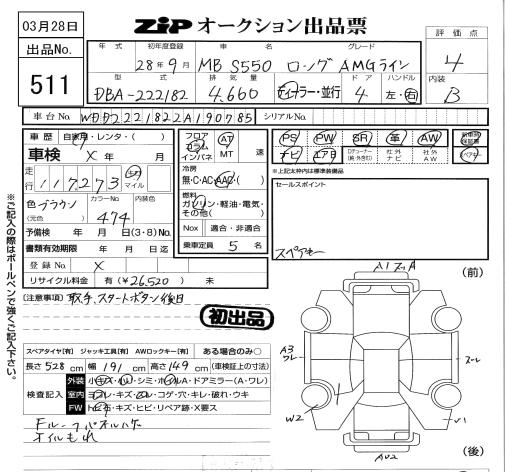 03月28日
ZiP オークション出品票
出品No.
511
評価点
4
内装
B
年式 初年度登録 車名 グレード
28年9月 MB S550 ロング AMGライン
型式 排気量 ドア ハンドル
DBA-222182 4,660 ディーラー・並行 4 左・右
車台No. WDD2221822A190785 シリアルNo.
車歴 自家用・レンタ・( )
車検 X年 月
走行 117,273 km マイル
色 ブラウン (元色) カラーNo. 474 内装色
予備検 年 月 日(3・8)No.
書類有効期限 年 月 日迄
登録No. X
リサイクル料金 有(¥26,520) 未
フロア コラム インパネ AT MT 速
冷房 無・C・AC・AAC・( )
燃料 ガソリン・軽油・電気・その他( )
Nox 適合・非適合
乗車定員 5 名
PS PW SR 革 AW
ナビ エアB 社外ナビ 社外AW
※上記太枠内は標準装備品
セールスポイント
スペアキー
(注意事項) 取手、スタートボタン後日
初出品
スペアタイヤ[有] ジャッキ工具[有] AWロックキー[有] ある場合のみ○
長さ 528 cm 幅 191 cm 高さ 149 cm (車検証上の寸法)
検査記入
外装 小キズ・凹・シミ・ホイルA・ドアミラー(A・ワレ)
室内 ヨゴレ・キズ・スレ・コゲ・穴・キレ・破れ・ウキ
FW トビ石・キズ・ヒビ・リペア跡・X要ス
オイルもれ
※ご記入の際はボールペンで強くご記入下さい。
(前)
A3
ワレ
スレ
W2
(後)